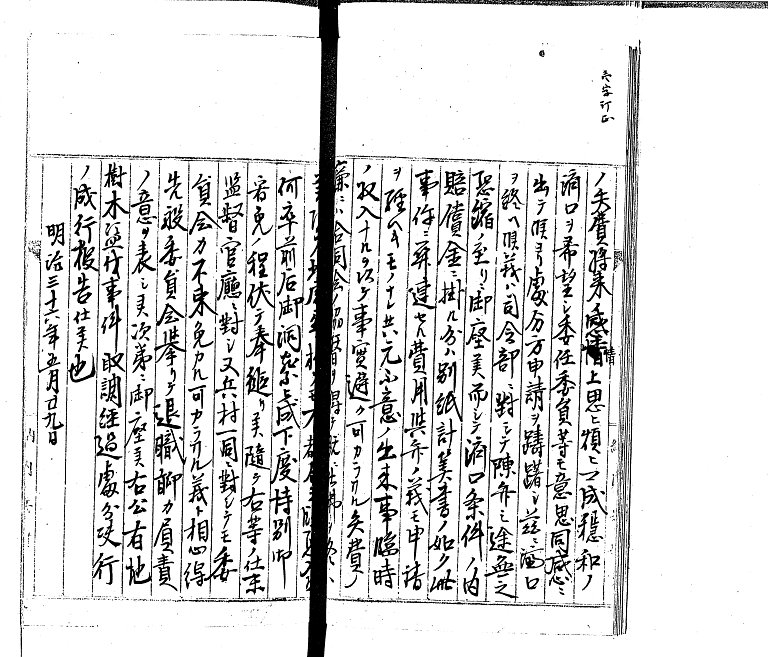 壱字訂正
ノ失費将来ノ感情上思ヒ煩ヒ一成穏和ノ
済口ヲ希望シ委任委員等モ意思同感ニ
出テ候ヨリ處分方申請ヲ躊躇シ茲ニ済口
ヲ終ヘ候義ハ司令部ニ對シテ陳弁ニ途無之
恐縮至リニ御座候而シテ済口条件ノ内
賠償金ニ掛ル分ハ別紙計算書ノ如ク此
事件ニ弁達セル費用供弁ノ義モ申請
ヲ経ヘキモノナレ共元不意ノ出来事臨時
ノ収入ナルヲ以テ事實避ク可カラサル失費ノ
廉ニハ合同会ノ協賛ヲ得テ
何卒前后御洞察上成下度特別御
容免ノ程伏テ奉縋リ候随テ右等ノ仕末
監督官廳ニ對シ又兵村一同ニ對シテモ委
員会カ不束免カル可カラサル義ト相心得
先般委員会挙リテ退職聊カ員責
ノ意ヲ表シ候次第ニ御座候右公有地
樹木盗伐事件取調経過處分決行
ノ成行報告仕候也
明治三十六年五月廿九日